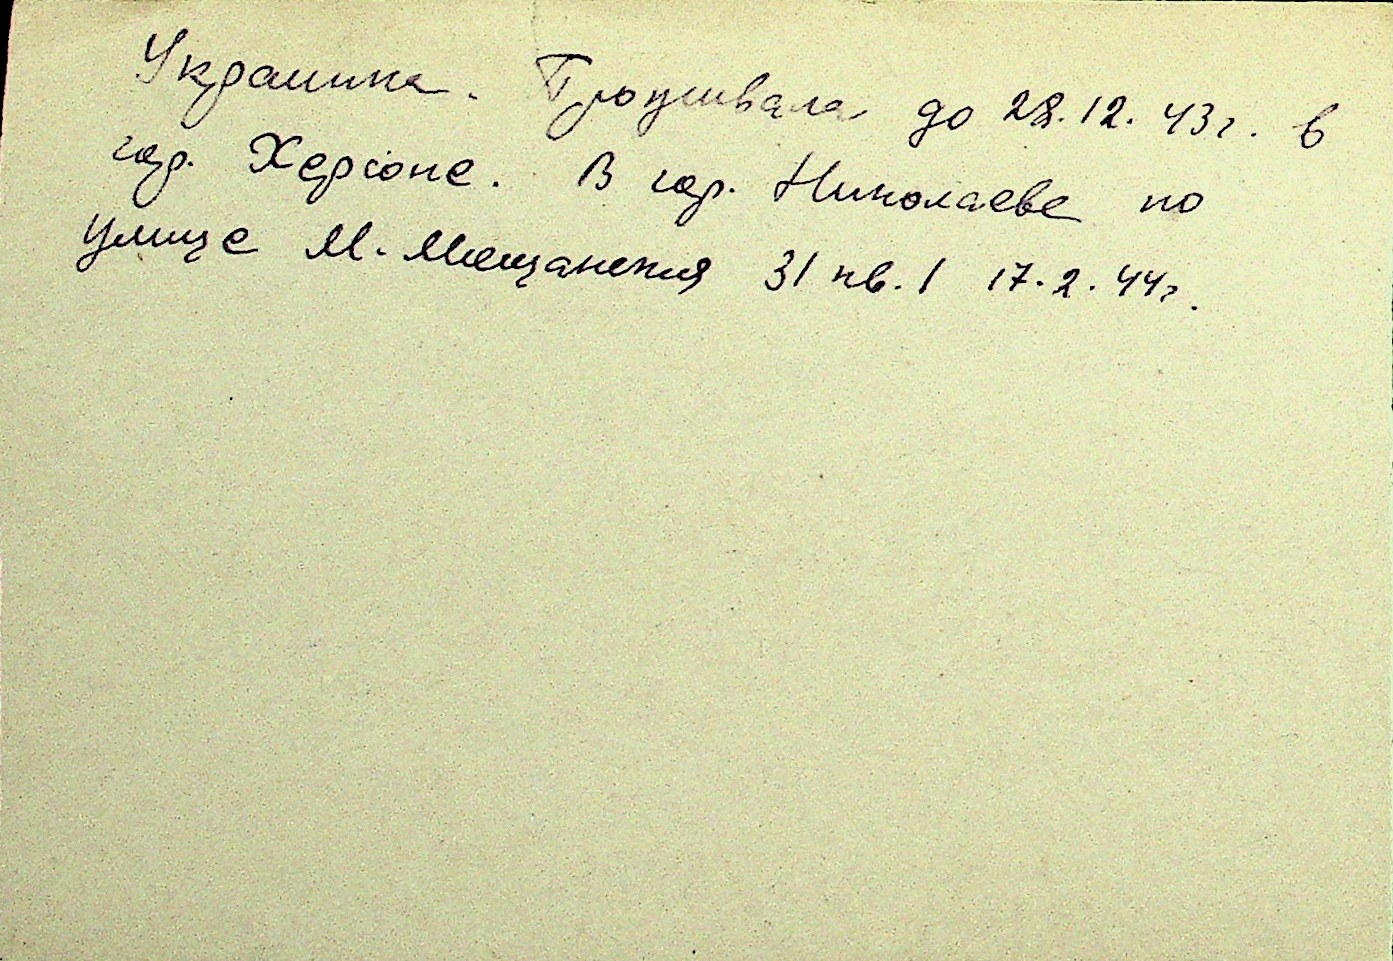 Украинка. Проживала до 28.12.43г. в
гор. Херсоне. В гор. Николаеве по
улице М. Мещанская 31 кв. 1 17.2.44г.